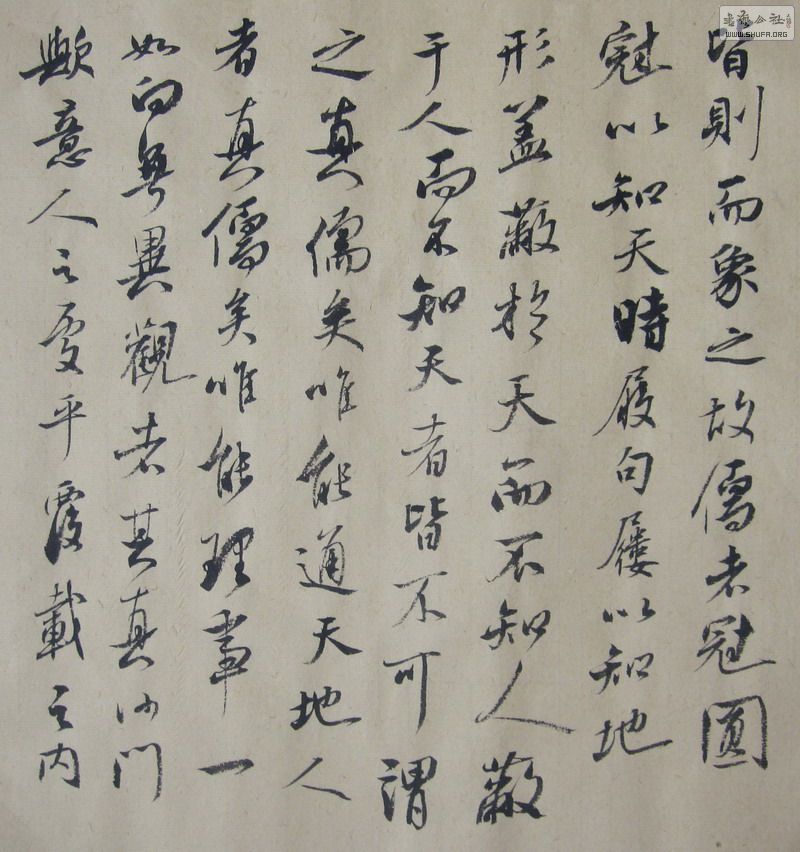 皆則而象之故儒者冠圓
冠以知天時履句屨以知地
形盖蔽於天而不知人蔽
于人而不知天者皆不可謂
之真儒矣唯能通天地人
者真儒矣唯能理事一
如向無異觀者其真沙門
歟意人之處乎覆載之内
公社
WWW.SHUFA.ORG